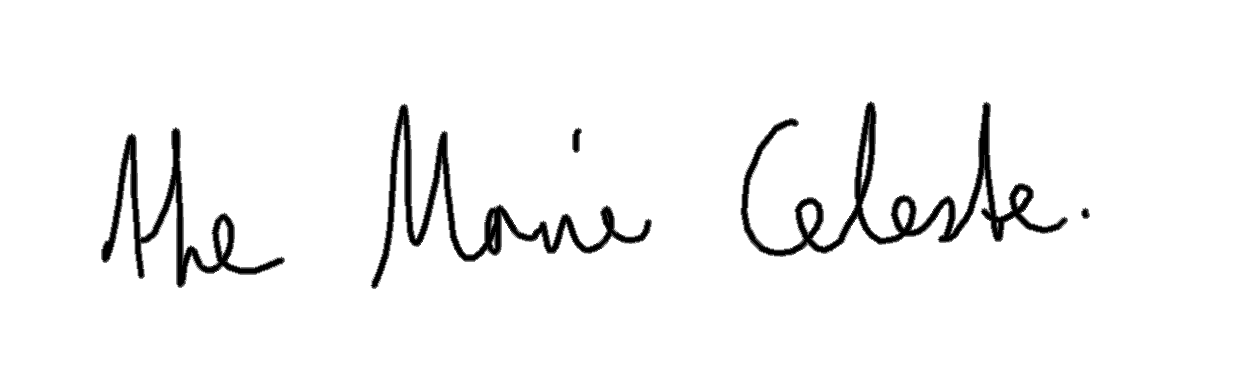 the Marie Celeste.